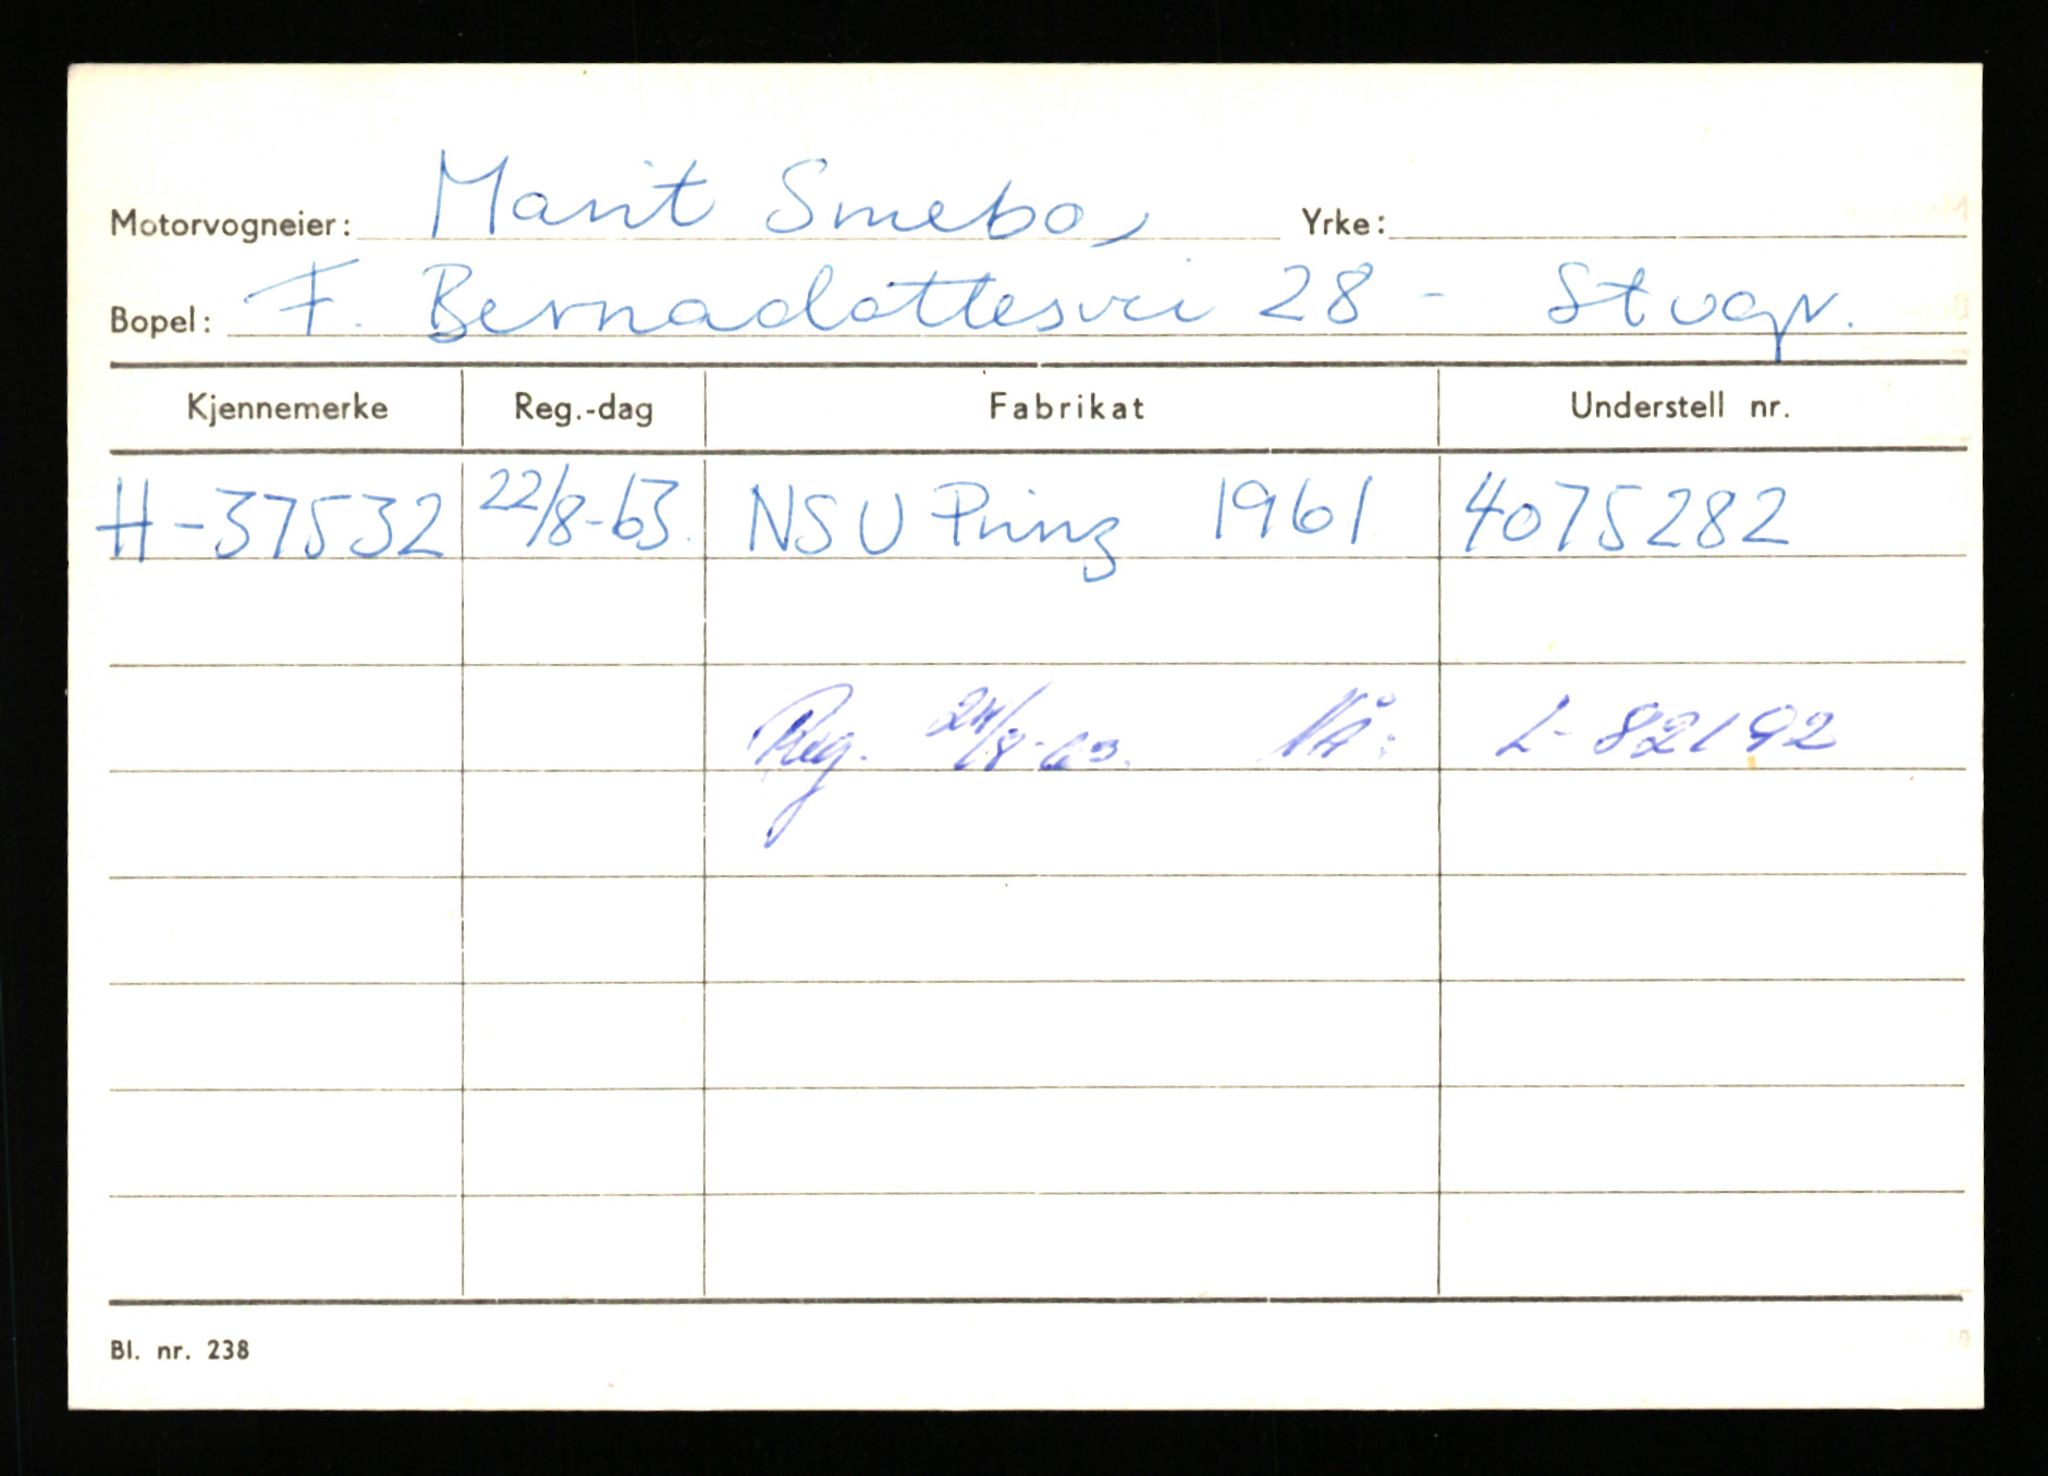 Motorvogneier: Marit Smebo, Yrke:
Bopel: F. Bernadottesvei 28 - Stvgr.
Kjennemerke Reg.-dag Fabrikat Understell nr.
H-37532 22/8-63. NSU Prinz 1961 4075282
Reg. 24/8-63. Nå: L-82192
Bl. nr. 238